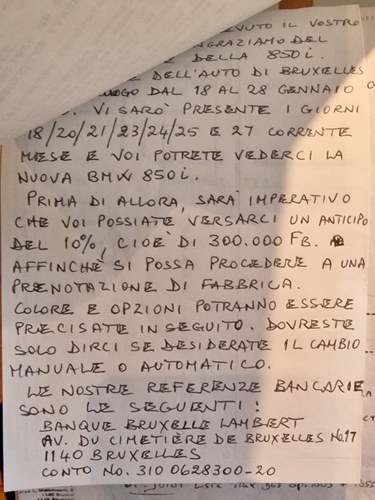 EVUTO IL VOSTRO
NGRAZIAMO DEL
E DELLA 850i.
E DELL'AUTO DI BRUXELLES
OGO DAL 18 AL 28 GENNAIO
VI SARO' PRESENTE I GIORNI
18/20/21/23/24/25 E 27 CORRENTE
MESE E VOI POTRETE VEDERCI LA
NUOVA BMW 850i.
PRIMA DI ALLORA, SARA' IMPERATIVO
CHE VOI POSSIATE VERSARCI UN ANTICIPO
DEL 10%, CIOE' DI 300.000 FB.
AFFINCHE' SI POSSA PROCEDERE A UNA
PRENOTAZIONE DI FABBRICA.
COLORE E OPZIONI POTRANNO ESSERE
PRECISATE IN SEGUITO. DOVRESTE
SOLO DIRCI SE DESIDERATE IL CAMBIO
MANUALE O AUTOMATICO.
LE NOSTRE REFERENZE BANCARIE
SONO LE SEGUENTI:
BANQUE BRUXELLE LAMBERT
AV. DU CIMETIÈRE DE BRUXELLES No.17
1140 BRUXELLES
CONTO No. 310 0628300-20